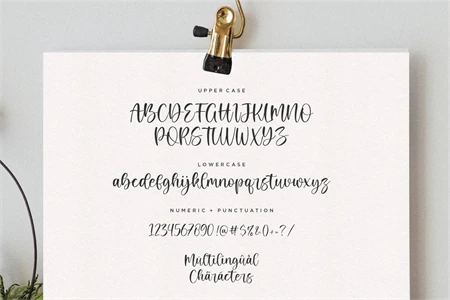 UPPERCASE
ABCDEFGHIJKLMNO
PQRSTUVWXYZ
LOWERCASE
abcdefghijklmnopqrstuvwxyz
NUMERIC + PUNCTUATION
1234567890!@#$%&()+-?/
Multilingûàl
Chäräcters